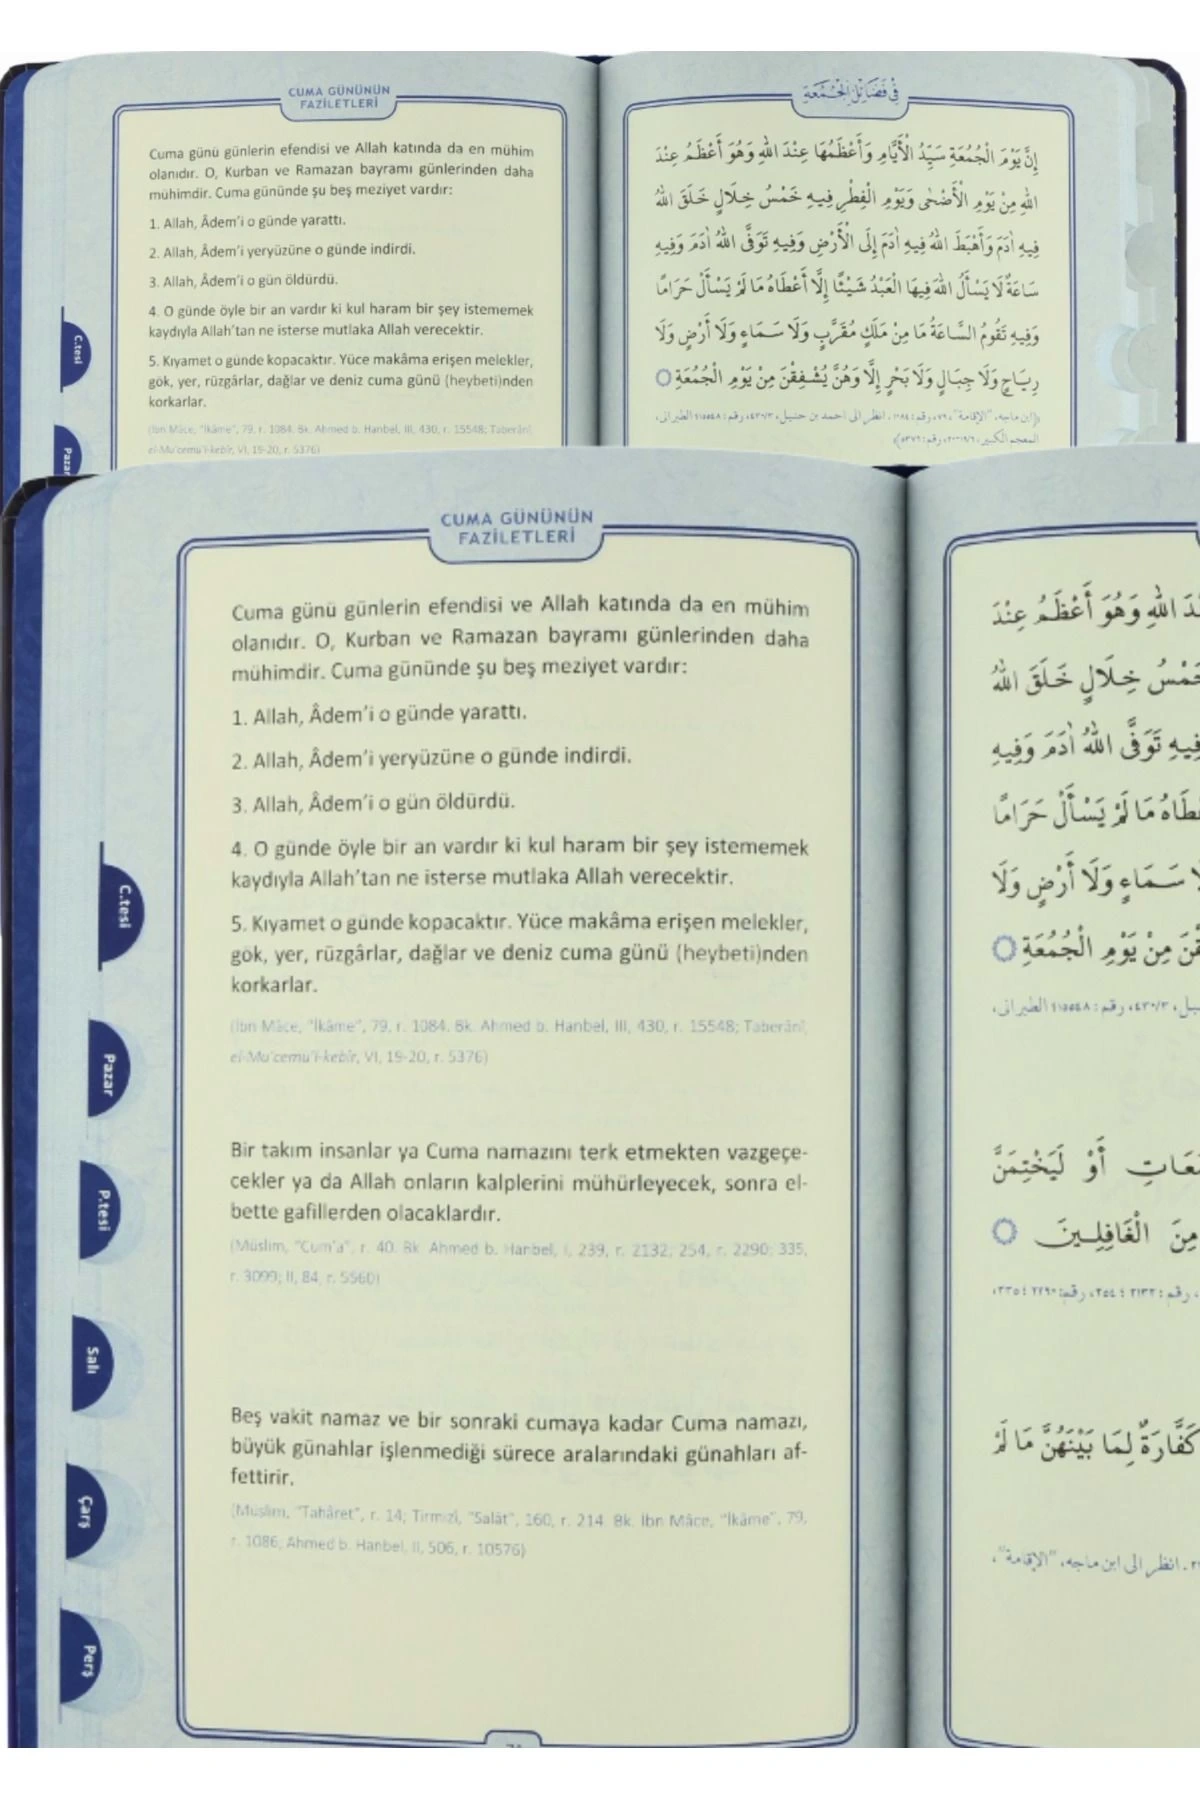 CUMA GÜNÜNÜN
FAZİLETLERİ
Cuma günü günlerin efendisi ve Allah katında da en mühim
olanıdır. O, Kurban ve Ramazan bayramı günlerinden daha
mühimdir. Cuma gününde şu beş meziyet vardır:
1. Allah, Âdem'i o günde yarattı.
2. Allah, Âdem'i yeryüzüne o günde indirdi.
3. Allah, Âdem'i o gün öldürdü.
4. O günde öyle bir an vardır ki kul haram bir şey istememek
kaydıyla Allah'tan ne isterse mutlaka Allah verecektir.
5. Kıyamet o günde kopacaktır. Yüce makâma erişen melekler,
gök, yer, rüzgârlar, dağlar ve deniz cuma günü (heybeti)nden
korkarlar.
(İbn Mâce, "İkâme", 79, r. 1084. Bk. Ahmed b. Hanbel, III, 430, r. 15548; Taberânî,
el-Mu'cemu'l-kebîr, VI, 19-20, r. 5376)
C.tesi
Pazar
فِي فَضَائِلِ الْجُمُعَةِ
إِنَّ يَوْمَ الْجُمُعَةِ سَيِّدُ الْأَيَّامِ وَأَعْظَمُهَا عِنْدَ اللهِ وَهُوَ أَعْظَمُ عِنْدَ
اللهِ مِنْ يَوْمِ الْأَضْحٰى وَيَوْمِ الْفِطْرِ فِيهِ خَمْسُ خِلَالٍ خَلَقَ اللهُ
فِيهِ اٰدَمَ وَأَهْبَطَ اللهُ فِيهِ اٰدَمَ إِلَى الْأَرْضِ وَفِيهِ تَوَفَّى اللهُ اٰدَمَ وَفِيهِ
سَاعَةٌ لَا يَسْأَلُ اللهَ فِيهَا الْعَبْدُ شَيْئًا إِلَّا أَعْطَاهُ مَا لَمْ يَسْأَلْ حَرَامًا
وَفِيهِ تَقُومُ السَّاعَةُ مَا مِنْ مَلَكٍ مُقَرَّبٍ وَلَا سَمَاءٍ وَلَا أَرْضٍ وَلَا
رِيَاحٍ وَلَا جِبَالٍ وَلَا بَحْرٍ إِلَّا وَهُنَّ يُشْفِقْنَ مِنْ يَوْمِ الْجُمُعَةِ
(ابن ماجه، "الإقامة"، ٧٩، رقم: ١٠٨٤. انظر الى احمد بن حنبل، ٤٣٠/٣، رقم: ١٥٥٤٨؛ الطبراني،
المعجم الكبير، ١٩/٦-٢٠، رقم: ٥٣٧٦)
CUMA GÜNÜNÜN
FAZİLETLERİ
Cuma günü günlerin efendisi ve Allah katında da en mühim
olanıdır. O, Kurban ve Ramazan bayramı günlerinden daha
mühimdir. Cuma gününde şu beş meziyet vardır:
1. Allah, Âdem'i o günde yarattı.
2. Allah, Âdem'i yeryüzüne o günde indirdi.
3. Allah, Âdem'i o gün öldürdü.
4. O günde öyle bir an vardır ki kul haram bir şey istememek
kaydıyla Allah'tan ne isterse mutlaka Allah verecektir.
5. Kıyamet o günde kopacaktır. Yüce makâma erişen melekler,
gök, yer, rüzgârlar, dağlar ve deniz cuma günü (heybeti)nden
korkarlar.
(İbn Mâce, "İkâme", 79, r. 1084. Bk. Ahmed b. Hanbel, III, 430, r. 15548; Taberânî,
el-Mu'cemu'l-kebîr, VI, 19-20, r. 5376)
Bir takım insanlar ya Cuma namazını terk etmekten vazgeçe-
cekler ya da Allah onların kalplerini mühürleyecek, sonra el-
bette gafillerden olacaklardır.
(Müslim, "Cum'a", r. 40. Bk. Ahmed b. Hanbel, I, 239, r. 2132; 254, r. 2290; 335,
r. 3099; II, 84, r. 5560)
Beş vakit namaz ve bir sonraki cumaya kadar Cuma namazı,
büyük günahlar işlenmediği sürece aralarındaki günahları af-
fettirir.
(Müslim, "Tahâret", r. 14; Tirmizî, "Salât", 160, r. 214. Bk. İbn Mâce, "İkâme", 79,
r. 1086; Ahmed b. Hanbel, II, 506, r. 10576)
C.tesi
Pazar
P.tesi
Salı
Çarş
Perş
اللهِ وَهُوَ أَعْظَمُ عِنْدَ
خِلَالٍ خَلَقَ اللهُ
تَوَفَّى اللهُ اٰدَمَ وَفِيهِ
مَا لَمْ يَسْأَلْ حَرَامًا
سَمَاءٍ وَلَا أَرْضٍ وَلَا
مِنْ يَوْمِ الْجُمُعَةِ
٤٣٠/٣، رقم: ١٥٥٤٨؛ الطبراني،
أَوْ لَيَخْتِمَنَّ
مِنَ الْغَافِلِينَ
رقم: ٢١٣٢؛ ٢٥٤، رقم: ٢٢٩٠؛ ٣٣٥،
كَفَّارَةٌ لِمَا بَيْنَهُنَّ مَا لَمْ
انظر الى ابن ماجه، "الإقامة"،